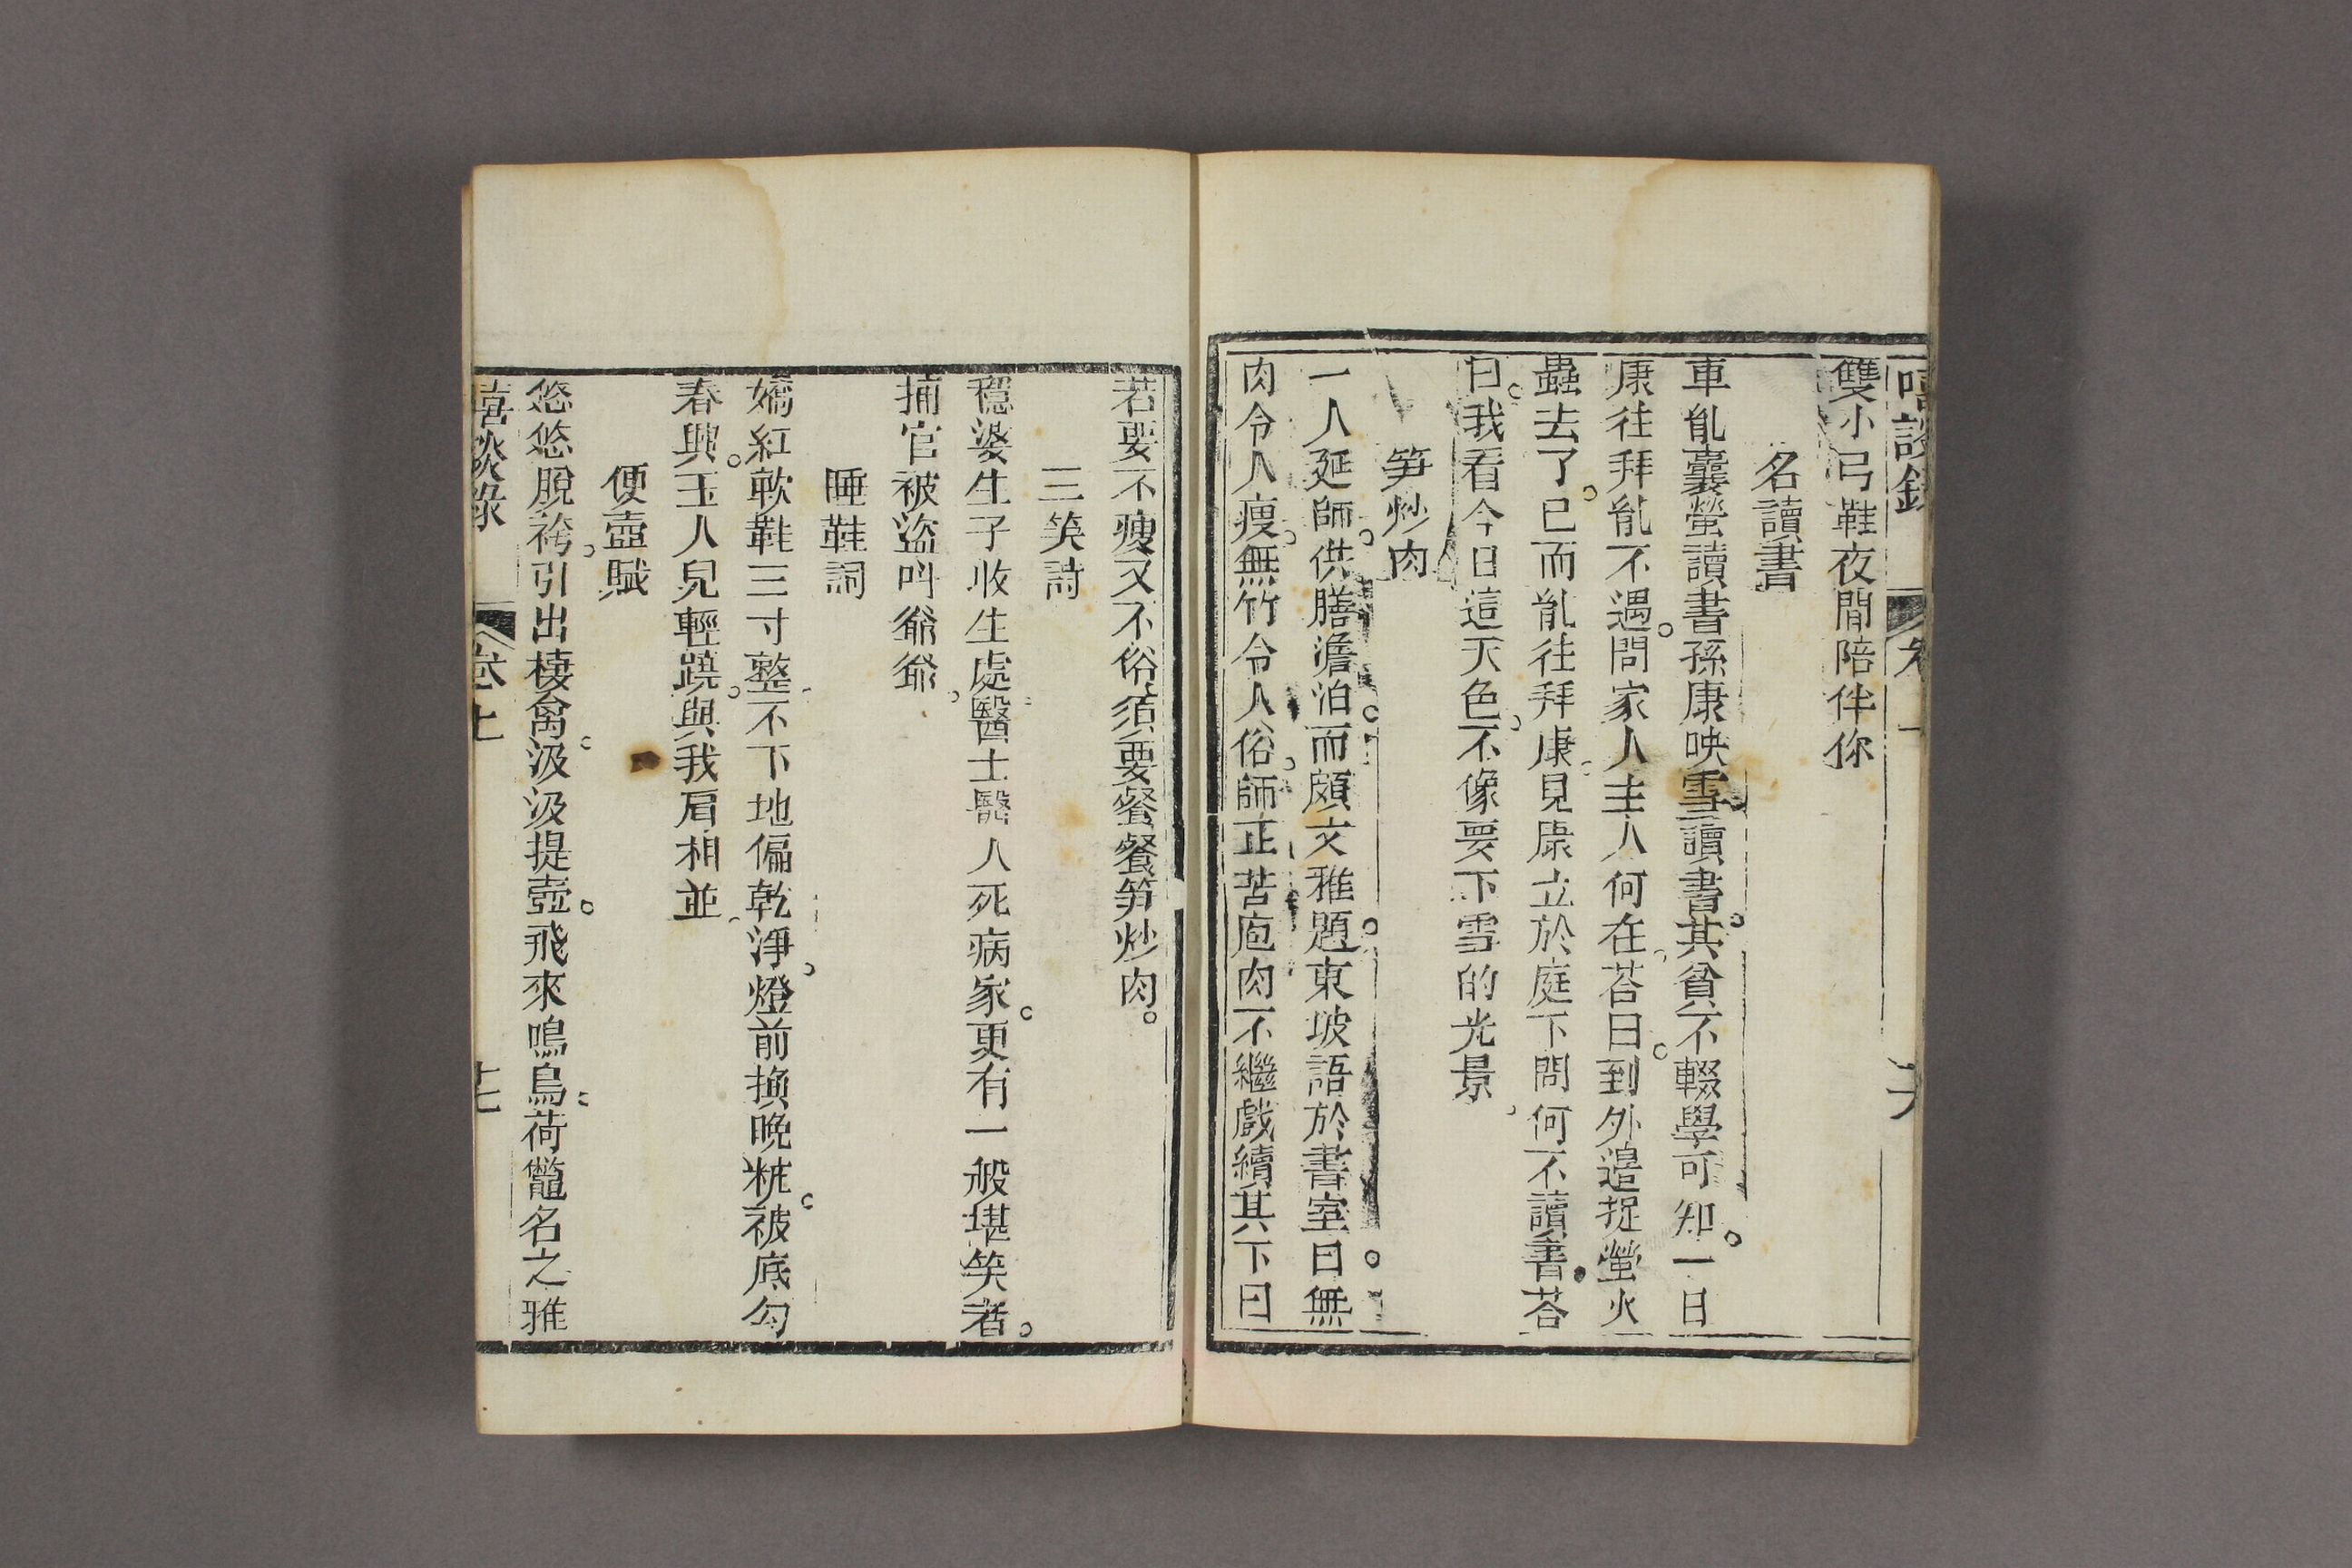 嘻談錄
卷
雙小弓鞋夜間陪伴你
名讀書
車胤囊螢讀書孫康映雪讀書。其貧不輟學可知。一日
康往拜胤不遇。問家人主人何在。荅曰。到外邉捉螢火
蟲去了。已而胤往拜康。見康立於庭下問何不讀書。荅
曰。我看今日這天色。不像要下雪的光景。
笋炒肉
一人延師。供膳澹泊。而頗文雅。題東坡語於書室。曰無
肉令人瘦。無竹令人俗。師正苦庖肉不繼戲續其下曰
若要不瘦又不俗。須要餐餐笋炒肉。
三笑詩
穩婆生子收生處。醫士醫人死病家。更有一般堪笑者。
捕官被盜叫爺爺。
睡鞋詞
嬌紅軟鞋三寸整。不下地偏乾淨。燈前換晚粧。被底勾
春興。玉人兒輕蹺。與我肩相並。
便壺賦
悠悠脫袴。引出棲禽。汲汲提壺。飛來鳴鳥。荷虌名之雅
嘻談錄
卷上